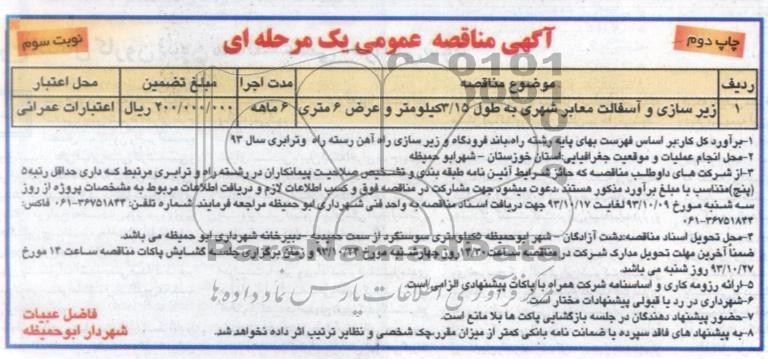 چاپ دوم
آگهی مناقصه عمومی یک مرحله ای
نوبت سوم
ردیف موضوع مناقصه مدت اجرا مبلغ تضمین محل اعتبار
۱ زیر سازی و آسفالت معابر شهری به طول ۳/۱۵کیلومتر و عرض ۶ متری ۶ ماهه ۲۰۰/۰۰۰/۰۰۰ ریال اعتبارات عمرانی
۱-برآورد کل کار:بر اساس فهرست بهای پایه رشته راه،باند فرودگاه و زیر سازی راه آهن رسته راه وترابری سال ۹۳
۲-محل انجام عملیات و موقعیت جغرافیایی:استان خوزستان - شهرابو حمیظه
۳-از شرکت های داوطلب مناقصه که حائز شرایط آئین نامه طبقه بندی و تشخیص صلاحیت پیمانکاران در رشته راه و ترابری مرتبط که داری حداقل رتبه۵
(پنج)متناسب با مبلغ برآورد مذکور هستند ،دعوت میشود جهت مشارکت در مناقصه فوق و کسب اطلاعات لازم و دریافت اطلاعات مربوط به مشخصات پروژه از روز
سه شنبه مورخ ۹۳/۱۰/۰۹ لغایت ۹۳/۱۰/۱۷ جهت دریافت اسناد مناقصه به واحد فنی شهرداری ابو حمیظه مراجعه فرمایند .شماره تلفن: ۳۶۷۵۱۸۴۴-۰۶۱ فاکس:
۳۶۷۵۱۸۴۳-۰۶۱
۴-محل تحویل اسناد مناقصه:دشت آزادگان - شهر ابوحمیظه ۵کیلومتری سوسنگرد از سمت حمیدیه - دبیرخانه شهرداری ابو حمیظه می باشد.
ضمناً آخرین مهلت تحویل مدارک شرکت در مناقصه تا ساعت ۱۳/۳۰ روز چهارشنبه مورخ ۹۳/۱۰/۲۴ و زمان برگزاری جلسه گشایش پاکات مناقصه ساعت ۱۳ مورخ
۹۳/۱۰/۲۷ روز شنبه می باشد.
۵-ارائه رزومه کاری و اساسنامه شرکت همراه با پاکات پیشنهادی الزامی است.
۶-شهرداری در رد یا قبولی پیشنهادات مختار است.
۷-حضور پیشنهاد دهندگان در جلسه بازگشایی پاکت ها بلا مانع است.
۸-به پیشنهاد های فاقد سپرده یا ضمانت نامه بانکی کمتر از میزان مقرر،چک شخصی و نظایر ترتیب اثر داده نخواهد شد.
فاضل عبیات
شهردار ابوحمیظه
ParsNamadData
مرکز فرآوری اطلاعات پارس نماد داده ها